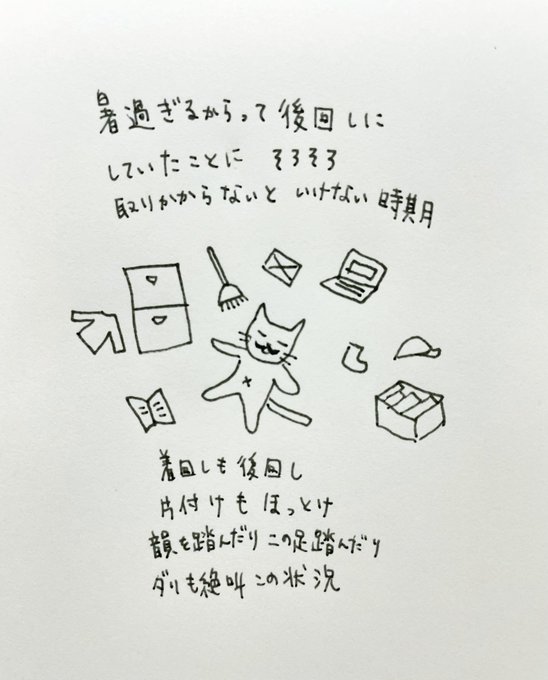 暑過ぎるからって後回しに
していたことに そろそろ
取りかからないと いけない時期
着回しも後回し
片付けもほっとけ
韻を踏んだりこの足踏んだり
ダリも絶叫この状況